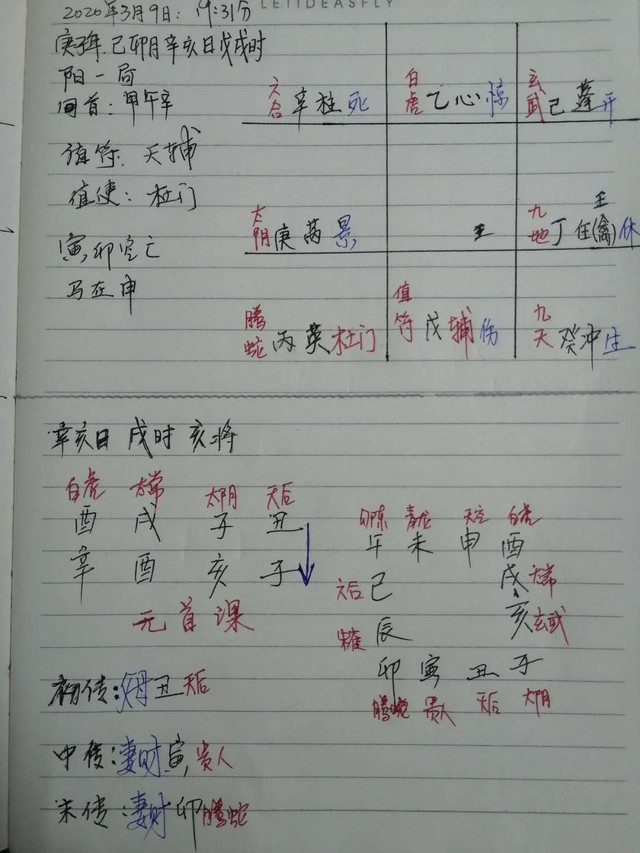 2020年3月9日: 19:31分
LEIIDEASFLY
庚子年.己卯月辛亥日戊戌时
阳一局
旬首:甲午辛
值符:天辅
值使:杜门
寅,卯空亡
马在申
六合 辛柱死
白虎 乙心惊
玄武 己蓬开
太阴 庚芮景
壬
壬
九地 丁任(禽)休
腾蛇 丙英杜门
值符 戊辅伤
九天 癸冲生
辛亥日 戌时 亥将
白虎 太常 太阴 天后
酉 戌 子 丑
辛 酉 亥 子
元首课
勾陈 青龙 天空 白虎
午 未 申 酉
六合 巳 戌 太常
辰 亥 玄武
卯 寅 丑 子
腾蛇 贵人 天后 太阴
初传:父母丑天后
中传:妻财寅,贵人
末传:妻财卯腾蛇